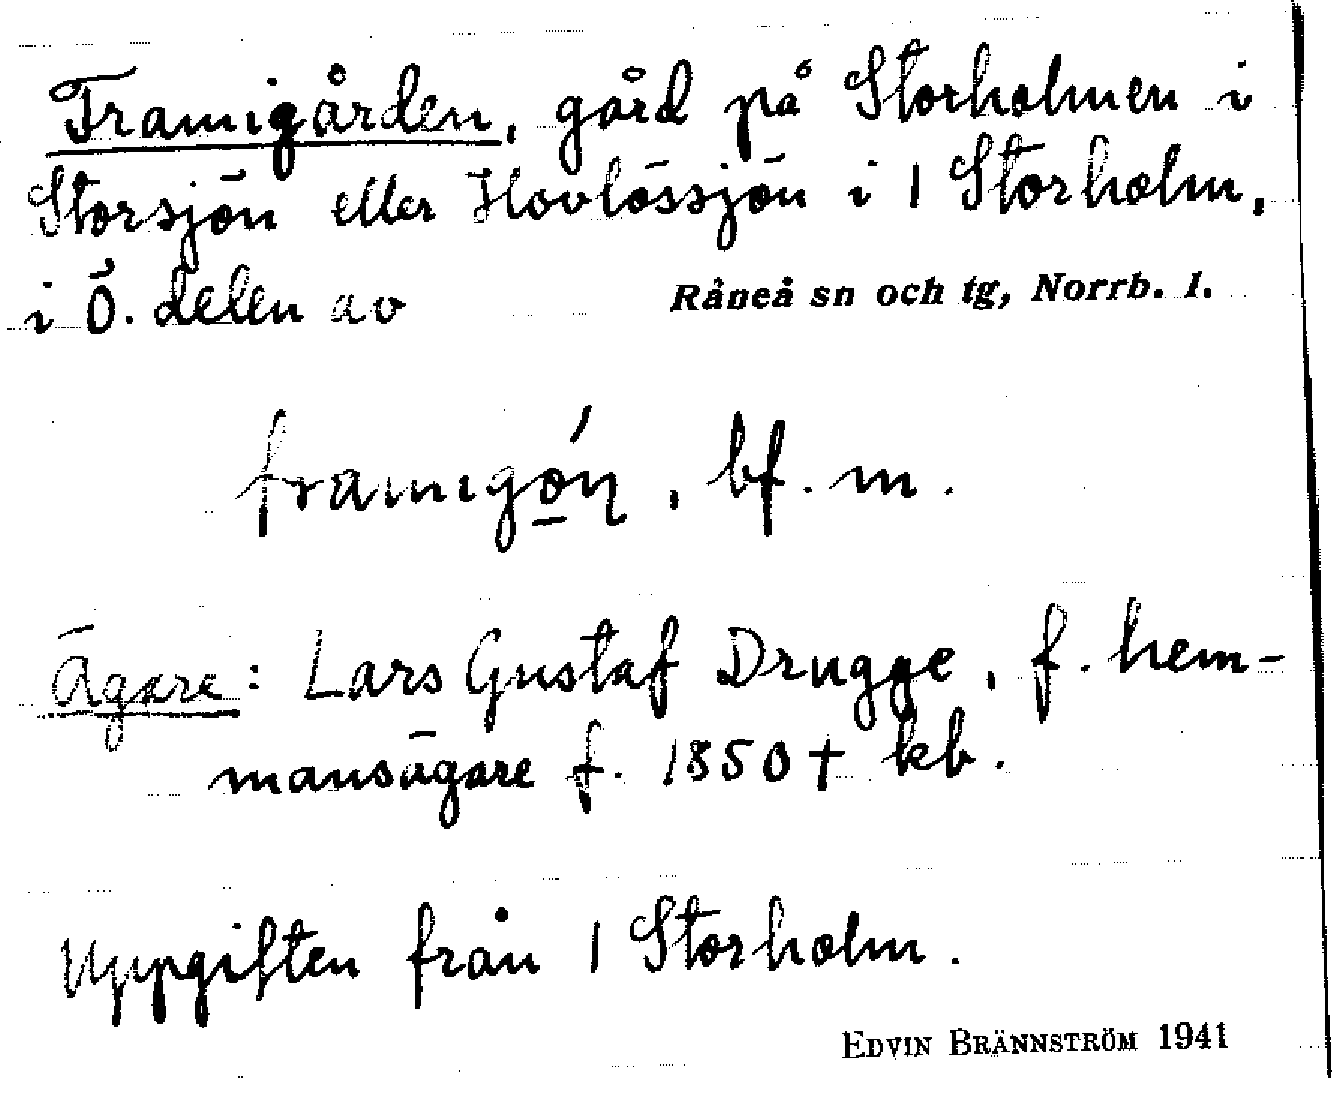 Framigården, gård på Storholmen i
Storsjön eller Hovlössjön i 1 Storholm,
i Ö. delen av Råneå sn och tg, Norrb. l.
bf. m.
Ägare: Lars Gustaf Drugge, f. hem-
mansägare f. 1850 † kb.
Uppgiften från 1 Storholm.
EDVIN BRÄNNSTRÖM 1941